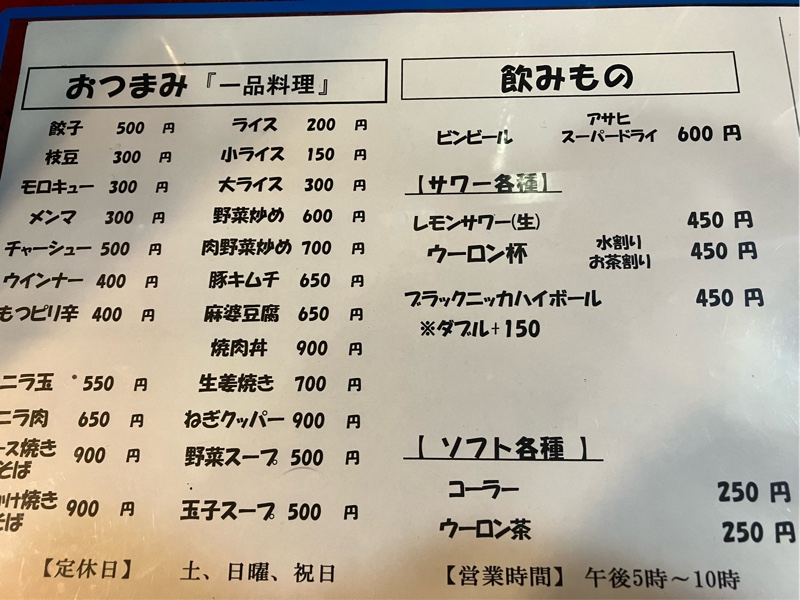 おつまみ『一品料理』
餃子 500 円
枝豆 300 円
モロキュー 300 円
メンマ 300 円
チャーシュー 500 円
ウインナー 400 円
もつピリ辛 400 円
ニラ玉 550 円
ニラ肉 650 円
ース焼き
そば 900 円
かけ焼き
そば 900 円
ライス 200 円
小ライス 150 円
大ライス 300 円
野菜炒め 600 円
肉野菜炒め 700 円
豚キムチ 650 円
麻婆豆腐 650 円
焼肉丼 900 円
生姜焼き 700 円
ねぎクッパー 900 円
野菜スープ 500 円
玉子スープ 500 円
【定休日】 土、日曜、祝日
飲みもの
ビンビール アサヒ
スーパードライ 600 円
【サワー各種】
レモンサワー(生) 450 円
ウーロン杯 水割り
お茶割り 450 円
ブラックニッカハイボール 450 円
※ダブル+150
【 ソフト各種 】
コーラー 250 円
ウーロン茶 250 円
【営業時間】 午後5時～10時